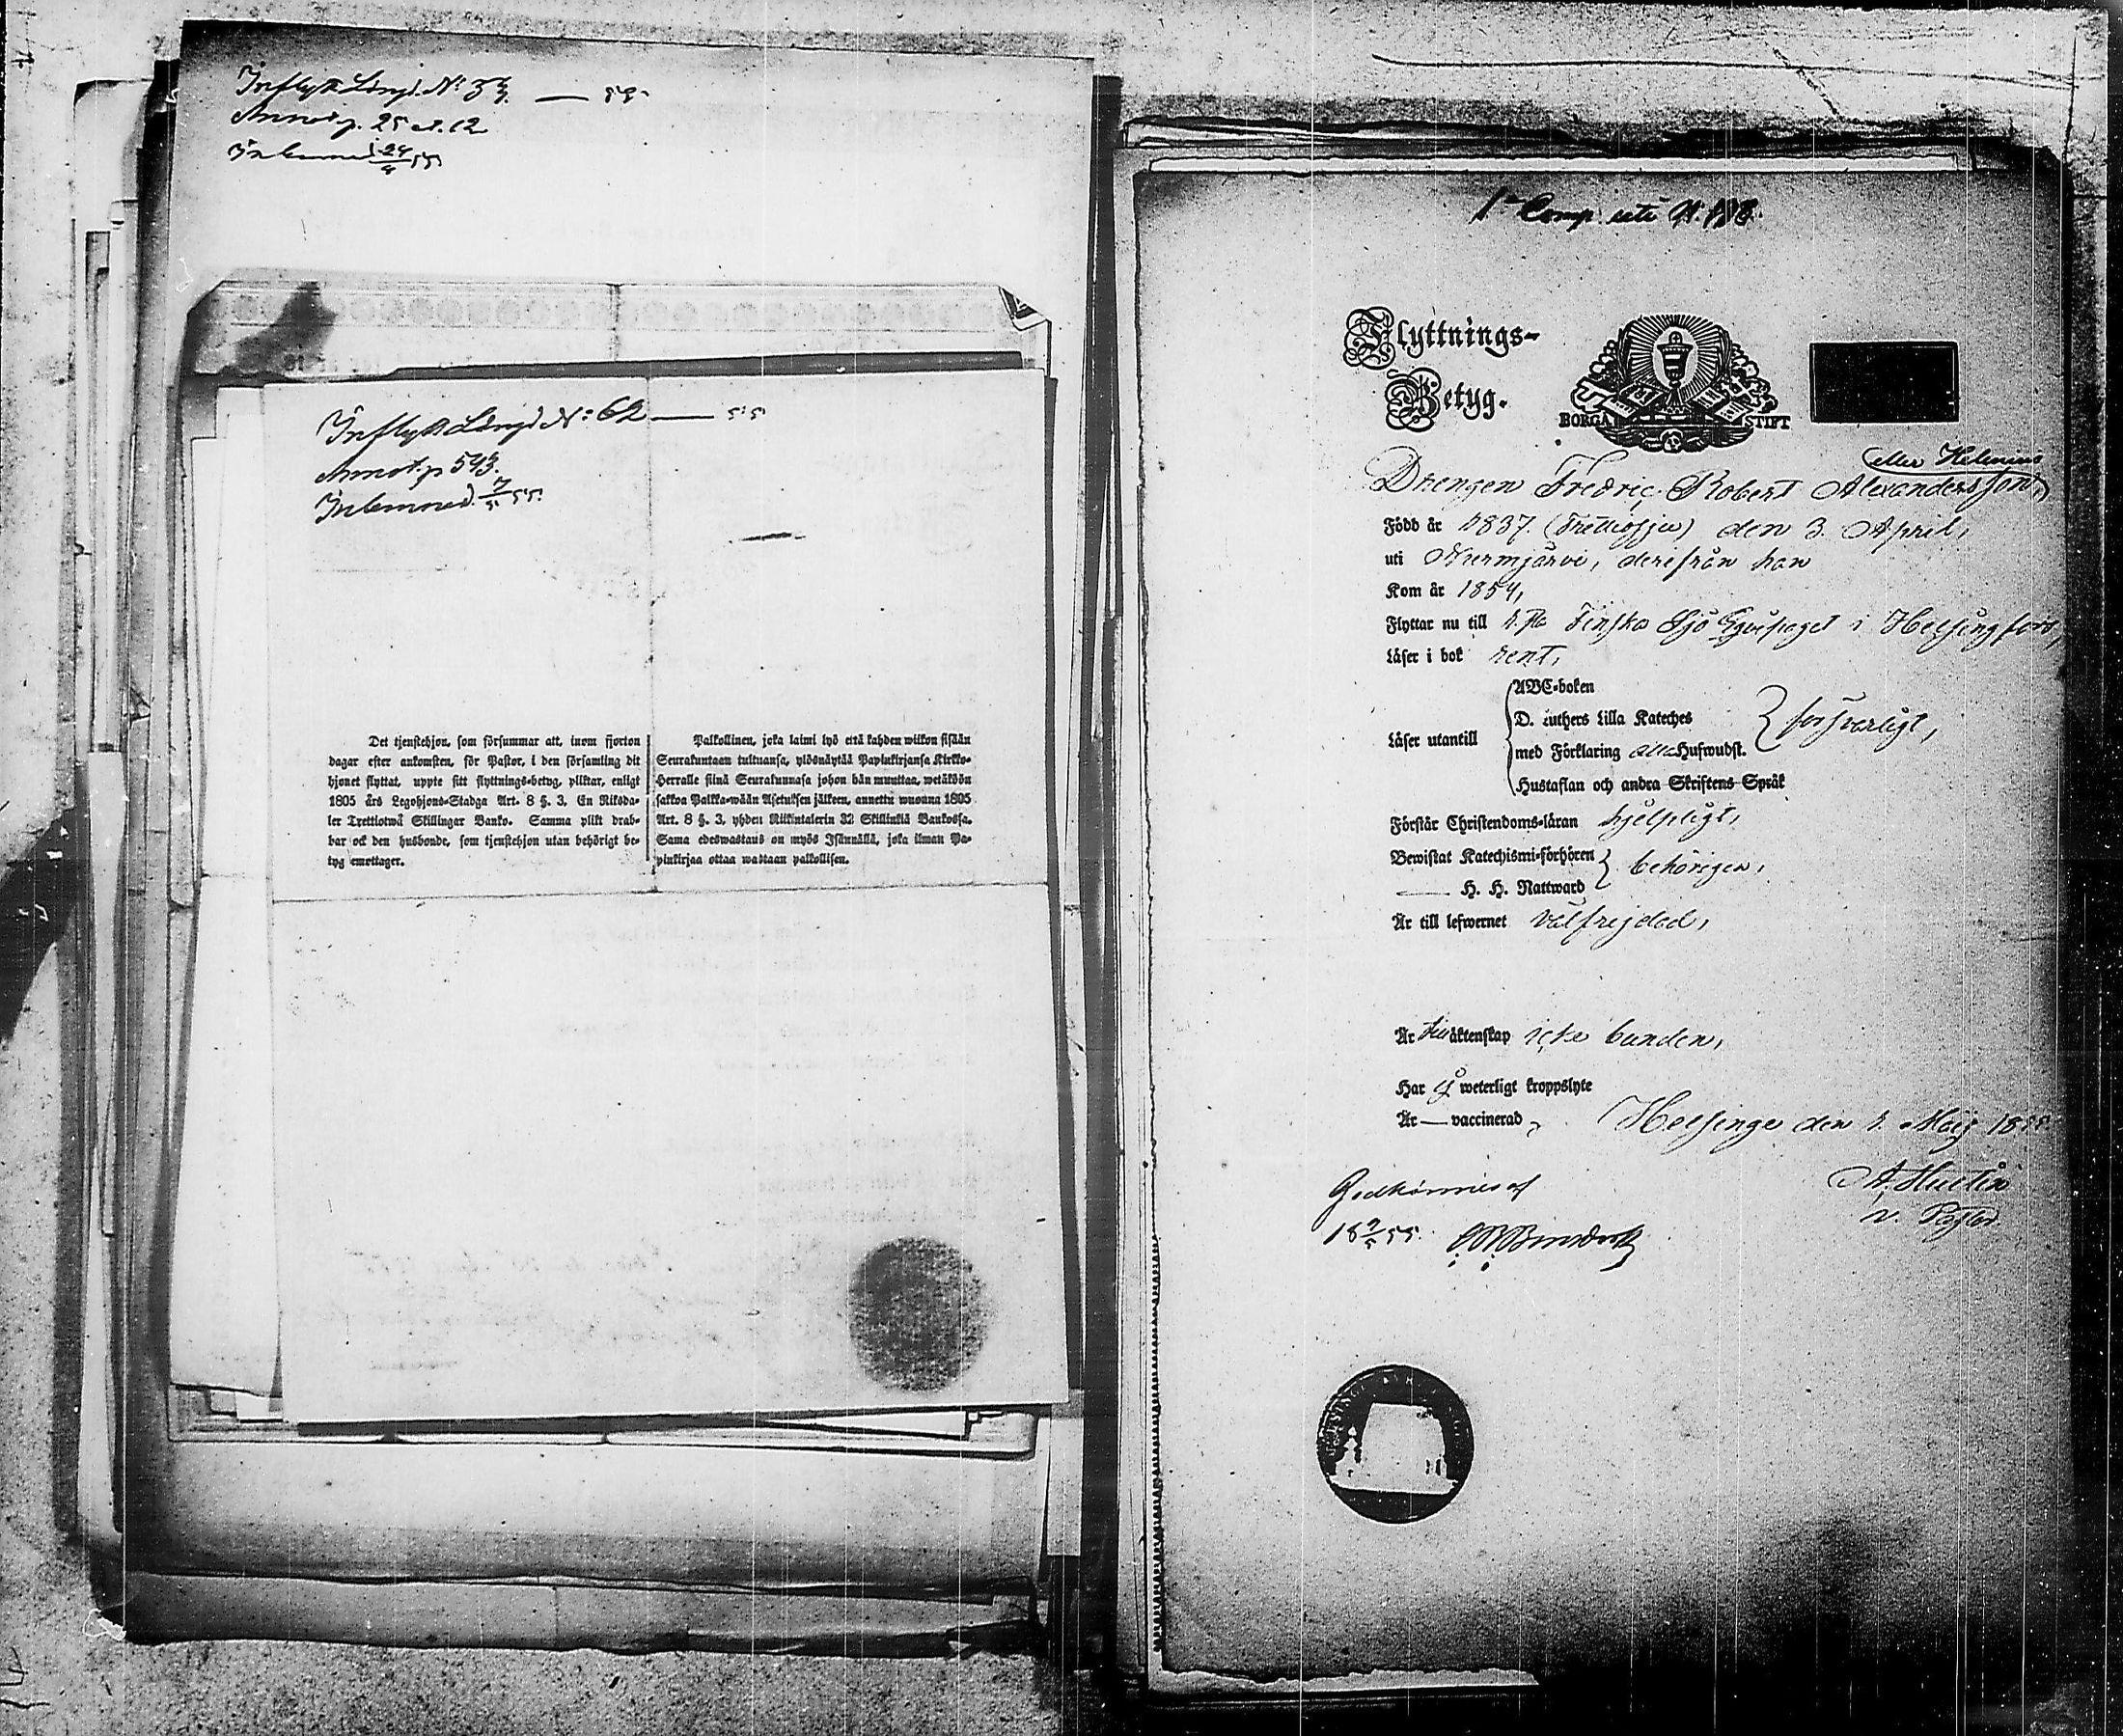 Inflytt. Längd. N:
Annot. p. 25 et. 12
Inlemnad 24/4 55
Inflytt. Längd N: 62 — 55
Annot. p 543.
Inlemnad. 7/5 55.
Det tjenstehjon, som försummar att, inom fjorton
dagar efter ankomsten, för Pastor, i den församling dit
hjonet flyttat, uppte sitt flyttnings-betyg, pliktar, enligt
1805 års Legohjons-Stadga Art. 8 §. 3, En Riksda-
ler Trettiotwå Skillingar Banko. Samma plikt drab-
bar ock den husbonde, som tjenstehjon utan behörigt be-
tyg emottager.
Palkollinen, joka laimi lyö että kahden wiikon sisään
Seurakuntaan tultuansa, ylösnäytää Papinkirjansa Kirkko-
Herralle siinä Seurakunnasa johon hän muuttaa, wetäköön
sakkoa Palkka-wään Asetuksen jälkeen, annettu wuonna 1805
Art. 8 §. 3, yhden Riikintalerin 32 Skillinkiä Bankossa.
Sama edeswastaus on myös Isännällä, joka ilman Pa-
pinkirjaa ottaa wastaan palkollisen.
1:a Comp. uti N.
Flyttnings-
Betyg.
BORGÅ STIFT
eller Helenius
Drengen Fredric Robert Alexandersson,
Född år 1837. (Trettiosju) den 3. April,
uti Nurmijärvi, derifrån han
Kom år 1854,
Flyttar nu till Finska Sjö Eqvipaget i Helsingfors,
Läser i bok rent,
Läser utantill
ABC-boken
D. Luthers Lilla Kateches
med Förklaring alla Hufwudst.
Hustaflan och andra Skriftens Språk
försvarligt,
Förstår Christendoms-läran hjelpligt,
Bewistat Katechismi-förhören
— H. H. Nattward
behörigen,
Är till lefwernet välfrejdad,
Är till äktenskap icke bunden,
Har ej weterligt kroppslyte
Är — vaccinerad, Helsinge den 1. Maij 1855
A. Hustin
v. Pastor.
Godkännes af
18 9/5 55.